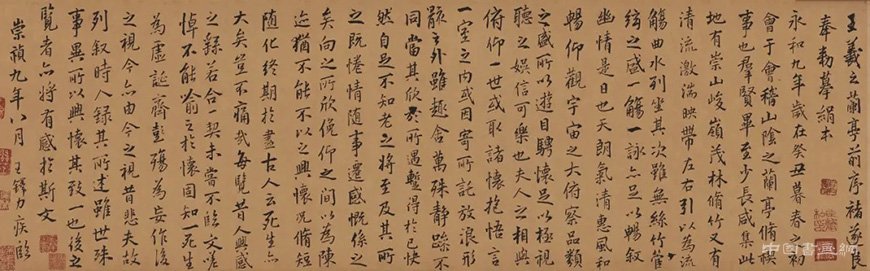 王羲之蘭亭前序褚遂良
奉勑摹絹本
永和九年歲在癸丑暮春之初
會于會稽山陰之蘭亭脩禊
事也羣賢畢至少長咸集此
地有崇山峻嶺茂林脩竹又有
清流激湍映帶左右引以為流
觴曲水列坐其次雖無絲竹管
絃之盛一觴一詠亦足以暢叙
幽情是日也天朗氣清惠風和
暢仰觀宇宙之大俯察品類
之盛所以遊目騁懷足以極視
聽之娛信可樂也夫人之相與
俯仰一世或取諸懷抱悟言
一室之内或因寄所託放浪形
骸之外雖趣舍萬殊静躁不
同當其欣於所遇暫得於己快
然自足不知老之將至及其所
之既惓情隨事遷感慨係之
矣向之所欣俛仰之間以為陳
迹猶不能不以之興懷况脩短
隨化終期於盡古人云死生亦
大矣豈不痛哉每覽昔人興感
之緣若合一契未嘗不臨文嗟
悼不能喻之於懷固知一死生
為虛誕齊彭殤為妄作後
之視今亦由今之視昔悲夫故
列叙時人録其所述雖世殊
事異所以興懷其致一也後之
覽者亦將有感於斯文
崇禎九年八月 王鐸力疾臨
中国书画網